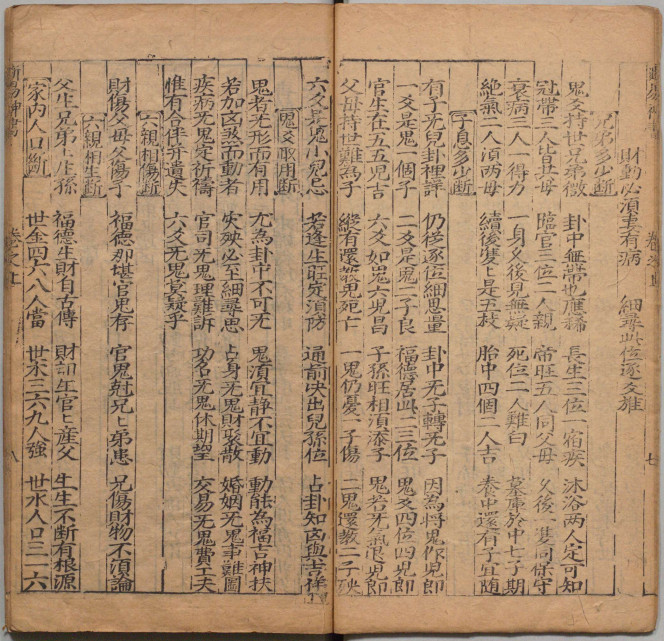 財動必須妻有病 細尋此位逐爻推
兄弟多少斷
鬼爻持世兄弟微 卦中無帶也應稀 長生三位一宿疾 沐浴兩人定可知
冠帶三人皆異母 臨官三位二人親 帝旺五人同父母 父後一隻同保守
衰病二人一得力 一身爻後見無疑 死位二人難曰 墓庫於中七子期
絶氣二人須兩母 續後雙上是五枝 胎中四個二人吉 養中還有子宜随
子息多少斷
有子无兒卦裡詳 仍將逐位細思量 卦中无子轉无子 因為將鬼作兒郎
一爻是鬼一個子 二爻是鬼二子良 福德居此二三位 鬼爻四位四兒郎
官生在五五兒吉 六爻如鬼六兒昌 子孫旺相須添子 鬼若死氣退兒郎
父母持世難為子 縱有還教見死亡 一鬼仍憂一子傷 二鬼還教二子殃
六爻是鬼小兒忌 若逢生旺定須防 通前决出兒孫位 占卦知凶與吉祥
鬼爻取用斷
鬼者无形而有用 尤為卦中不可无 鬼須宜静不宜動 動能為福吉神扶
若加凶煞而動者 灾殃必至細尋思 占身无鬼財衰散 婚姻无鬼事難圖
疾病无鬼定祈禱 官司无鬼理難訴 功名无鬼休期望 交易无鬼費工夫
惟有合伴并遺失 六爻无鬼莫疑乎
六親相傷斷
財傷父母父傷子 福德那堪官鬼存 官鬼尅兄上弟患 兄傷財物不須論
六親相生斷
父生兄弟上生孫 福德生財自古傳 財却生官上產父 生生不断有根源
家内人口斷
世金四六八人當 世木三六九人強 世水人口三一六
斷易神書 卷之上 八
卷之上 七